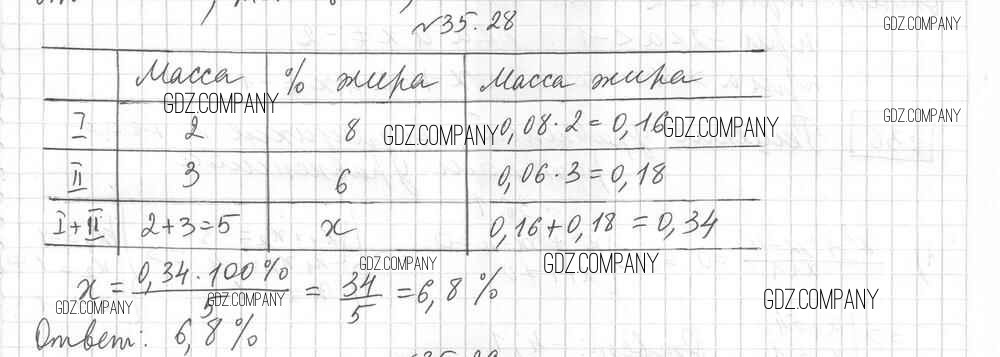 №35.28
GDZ.COMPANY
Масса % жира Масса жира
GDZ.COMPANY
I 2 8 0,08·2=0,16
GDZ.COMPANY GDZ.COMPANY GDZ.COMPANY
II 3 6 0,06·3=0,18
I+II 2+3=5 x 0,16+0,18=0,34
GDZ.COMPANY GDZ.COMPANY
x = 0,34·100% / 5 = 34 / 5 = 6,8%
GDZ.COMPANY GDZ.COMPANY GDZ.COMPANY
Ответ: 6,8%